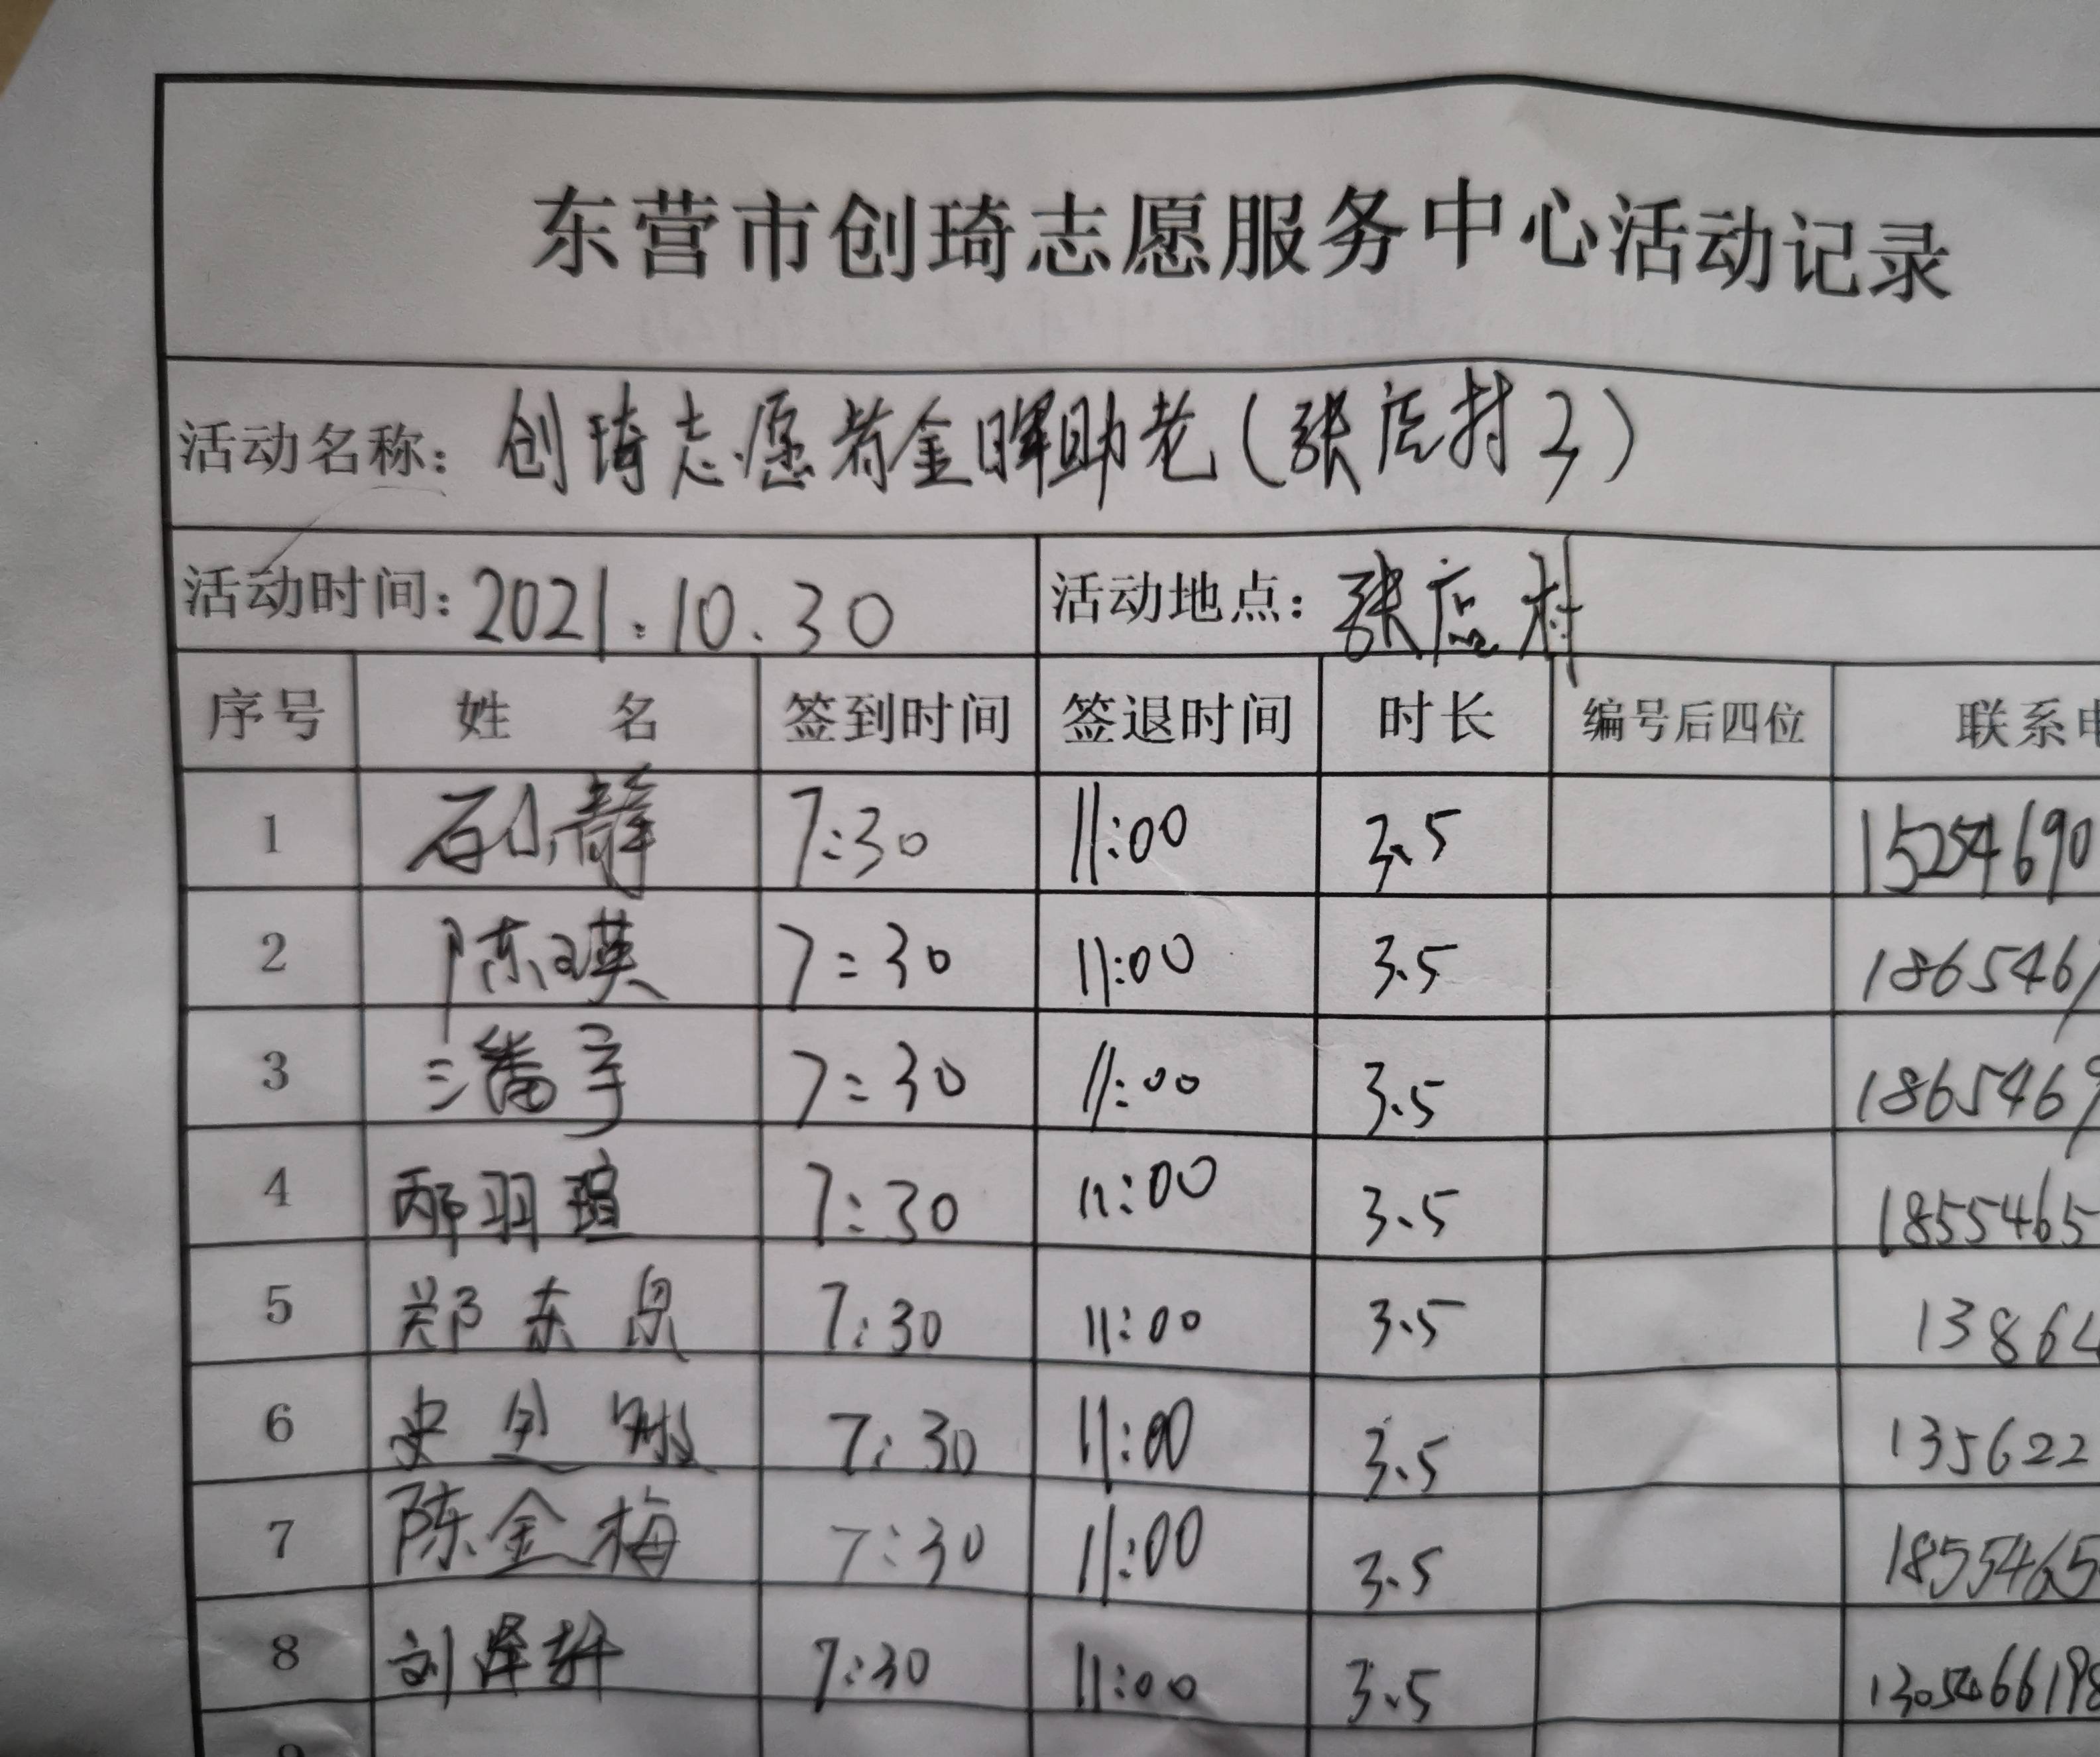 东营市创琦志愿服务中心活动记录
活动名称：创琦志愿者金晖助老（张店村3）
活动时间：2021.10.30 活动地点：张店村
序号 姓 名 签到时间 签退时间 时长 编号后四位 联系
1 石小静 7:30 11:00 3.5 15254690
2 陈瑛 7:30 11:00 3.5 186546
3 潘宇 7:30 11:00 3.5 1865469
4 邴羽瑄 7:30 11:00 3.5 1855465
5 郑东泉 7:30 11:00 3.5 1386
6 史 7:30 11:00 3.5 135622
7 陈金梅 7:30 11:00 3.5 1855465
8 刘泽轩 7:30 11:00 3.5 130546619